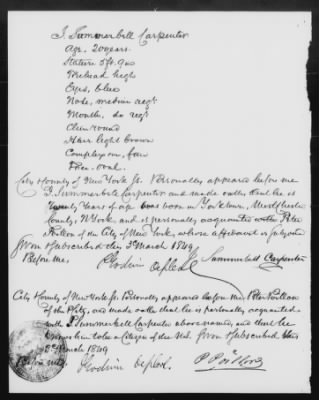 J. Summerbell Carpenter
Age. 20 years
Stature 5 ft. 9 ins
Forehead high
Eyes, blue
Nose, medium regr
Mouth, do regr
Chin round
Hair light brown
Complexion, fair
Face. oval.
City & County of New York ss. Personally appeared before me
J. Summerbell Carpenter and made oath, that he is
twenty years of age was born in Yorktown, Westchester
County, N York. and is personally acquainted with Peter
of the City of New York, whose affidavit is subjoined
Sworn & Subscribed this 3d March 1849
Before me,
Summerbell Carpenter
City & County of New York ss. Personally appeared before me Peter
of this City, and made oath that he is personally acquainted
with J. Summerbell Carpenter above named, and that he
knows him to be a Citizen of the U.S. Sworn & Subscribed this
3d March 1849
Before me,